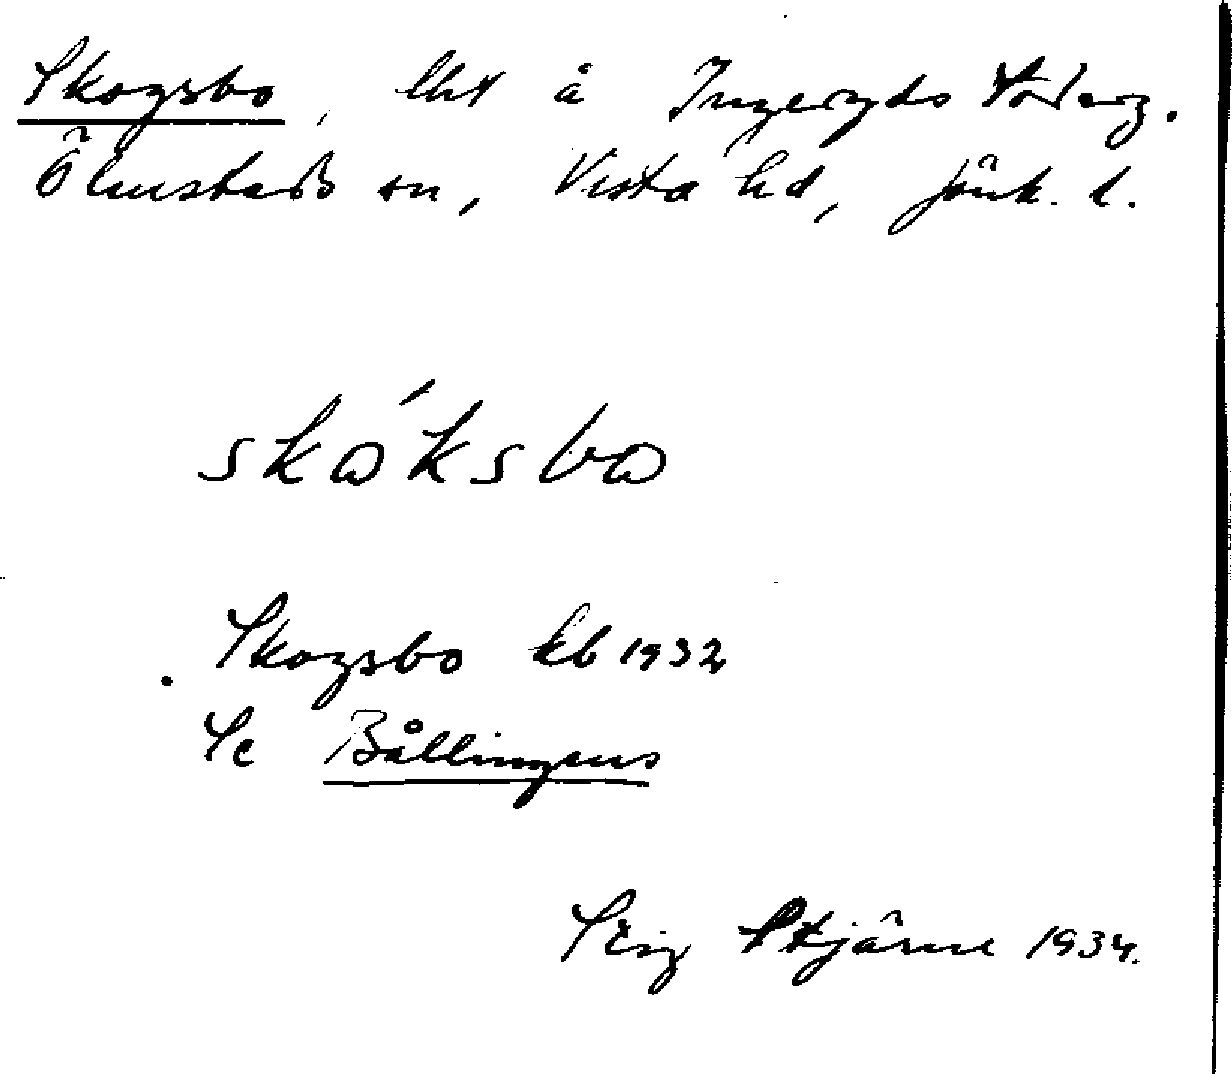 Skogsbo, lht å Ingeryds Söderg.
Ölmstads sn, Vista hd, Jönk. l.
skǿksbo
Skogsbo kb 1932
Se Bållingens
Stig Stjärne 1934.